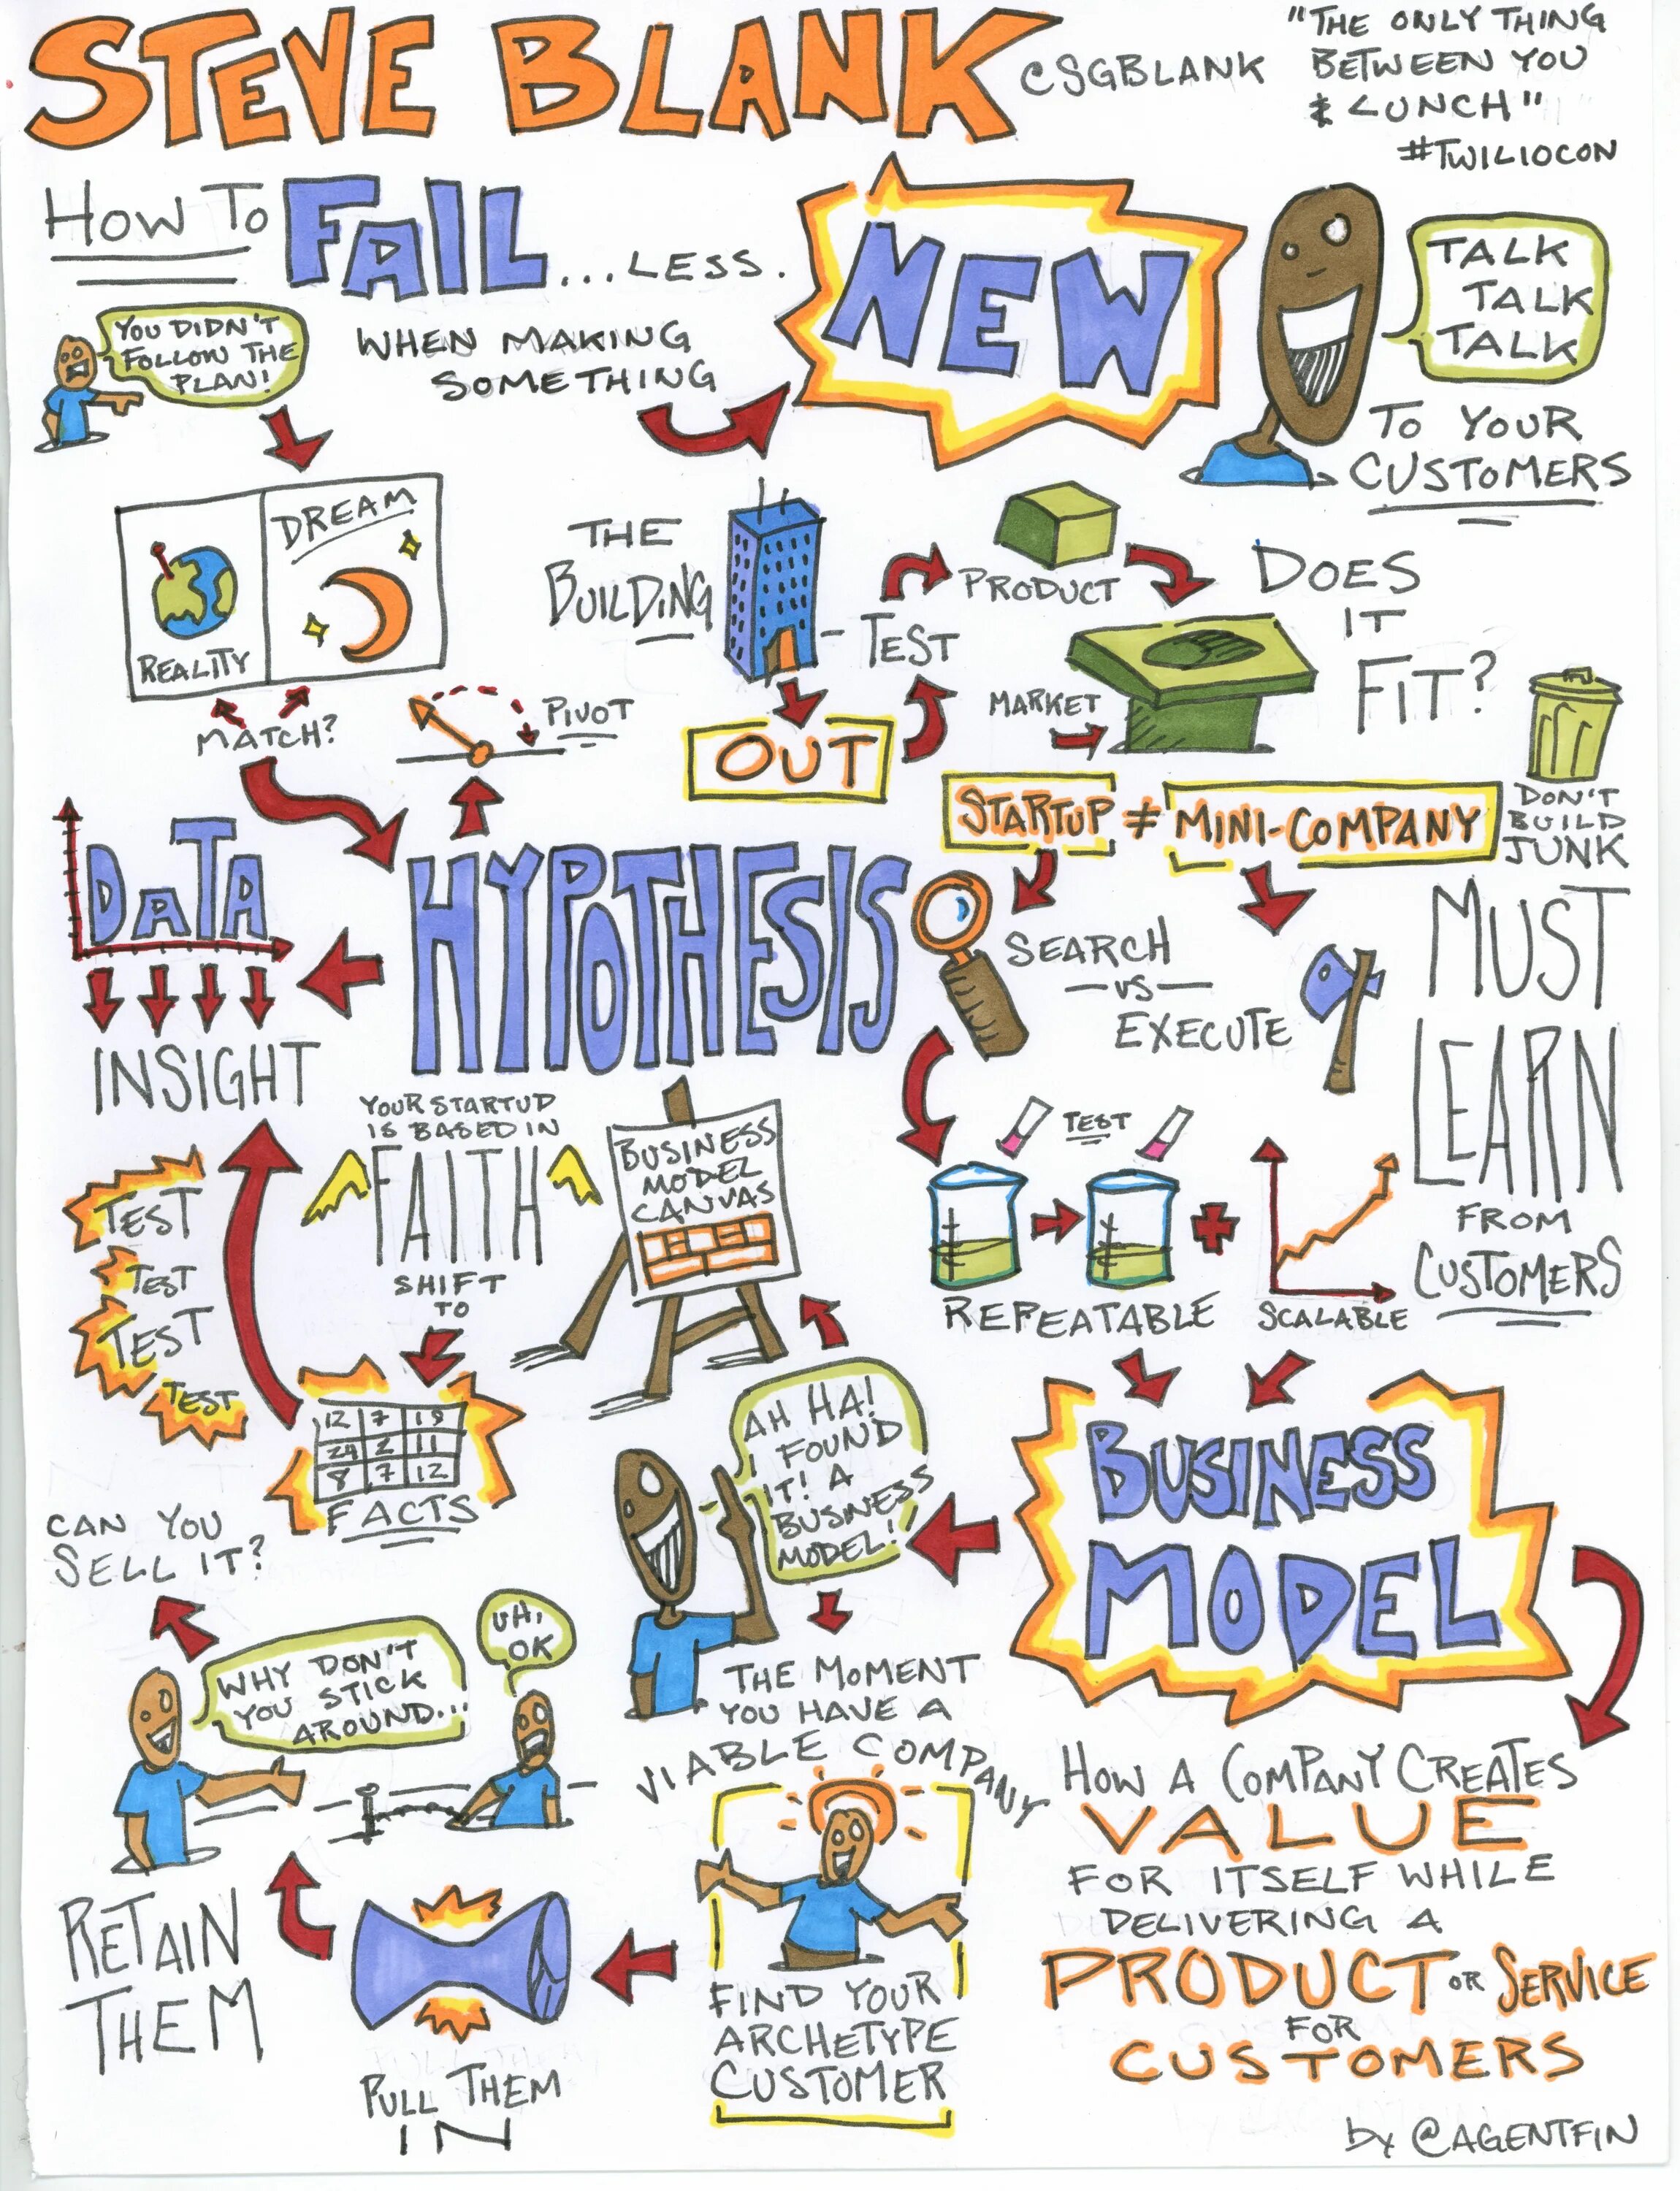 STEVE BLANK
@SGBLANK
"THE ONLY THING
BETWEEN YOU
& LUNCH"
#TWILIOCON
HOW TO FAIL...LESS.
WHEN MAKING
SOMETHING
NEW
TALK
TALK
TALK
TO YOUR
CUSTOMERS
YOU DIDN'T
FOLLOW THE
PLAN!
REALITY
DREAM
MATCH?
PIVOT
THE
BUILDING
OUT
TEST
PRODUCT
MARKET
DOES
IT
FIT?
DON'T
BUILD
JUNK
STARTUP ≠ MINI-COMPANY
DATA
INSIGHT
HYPOTHESIS
SEARCH
—VS—
EXECUTE
MUST
LEARN
FROM
CUSTOMERS
YOUR STARTUP
IS BASED IN
FAITH
SHIFT
TO
FACTS
12 7 19
24 2 11
8 7 12
TEST
TEST
TEST
TEST
BUSINESS
MODEL
CANVAS
TEST
REPEATABLE
+
SCALABLE
BUSINESS
MODEL
AH HA!
I FOUND
IT! A
BUSINESS
MODEL!
THE MOMENT
YOU HAVE A
VIABLE COMPANY
CAN YOU
SELL IT?
WHY DON'T
YOU STICK
AROUND...
UH,
OK
RETAIN
THEM
PULL THEM
IN
FIND YOUR
ARCHETYPE
CUSTOMER
HOW A COMPANY CREATES
VALUE
FOR ITSELF WHILE
DELIVERING A
PRODUCT OR SERVICE
FOR
CUSTOMERS
by @AGENTFIN